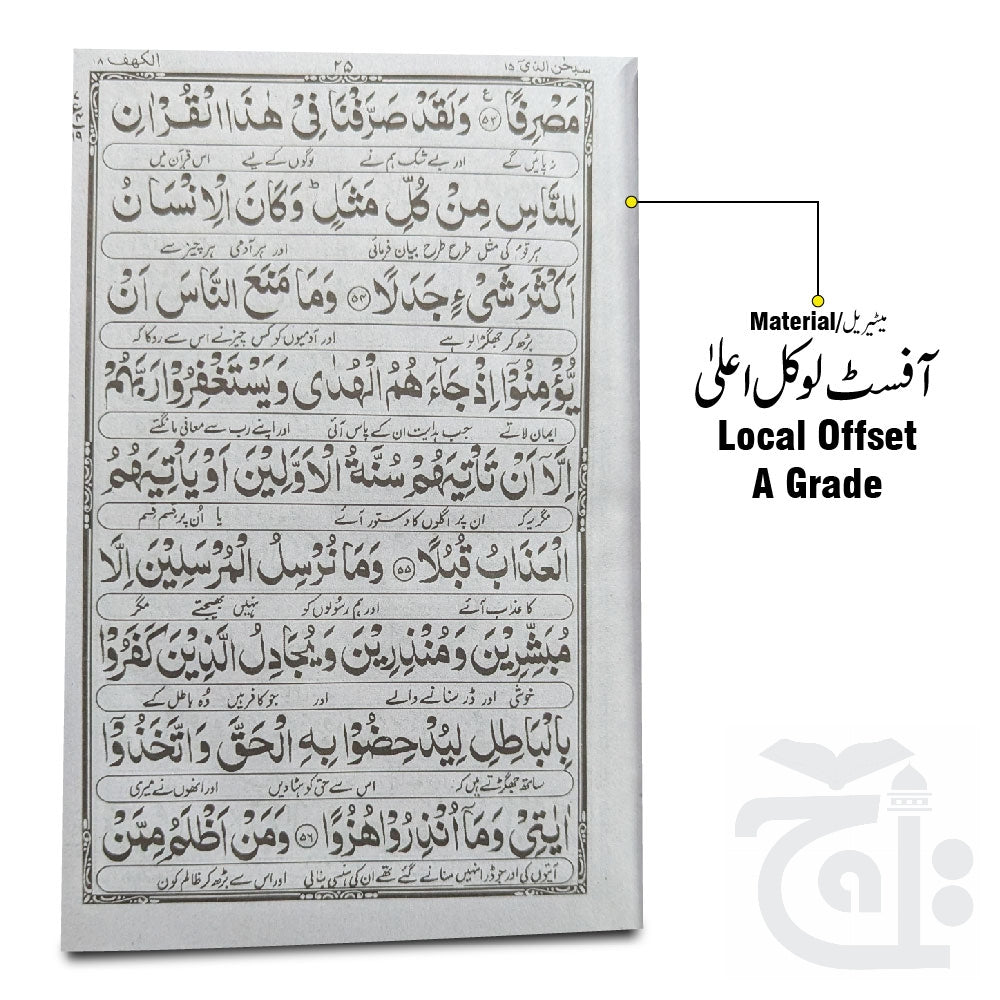 سبحٰن الذیٓ ۱۵ ۲۵ الکھف ۸
مَصْرِفًا ﴿۵۳﴾ ع وَلَقَدْ صَرَّفْنَا فِیْ هٰذَا الْقُرْاٰنِ
نہ پائیں گے اور بے شک ہم نے لوگوں کے لیے اس قرآن میں
لِلنَّاسِ مِنْ كُلِّ مَثَلٍ ؕ وَكَانَ الْاِنْسَانُ
ہر قوم کی مثل طرح طرح بیان فرمائی اور ہر آدمی ہر چیز سے
اَكْثَرَ شَیْءٍ جَدَلًا ﴿۵۴﴾ وَمَا مَنَعَ النَّاسَ اَنْ
بڑھ کر جھگڑالو ہے اور آدمیوں کو کس چیز نے اس سے روکا کہ
یُّؤْمِنُوْۤا اِذْ جَآءَ هُمُ الْهُدٰی وَیَسْتَغْفِرُوْا رَبَّهُمْ
ایمان لاتے جب ہدایت ان کے پاس آئی اور اپنے رب سے معافی مانگتے
اِلَّاۤ اَنْ تَاْتِیَهُمْ سُنَّةُ الْاَوَّلِیْنَ اَوْ یَاْتِیَهُمُ
مگر یہ کہ ان پر اگلوں کا دستور آئے یا اُن پر قسم قسم
الْعَذَابُ قُبُلًا ﴿۵۵﴾ وَمَا نُرْسِلُ الْمُرْسَلِیْنَ اِلَّا
کا عذاب آئے اور ہم رسولوں کو نہیں بھیجتے مگر
مُبَشِّرِیْنَ وَمُنْذِرِیْنَ وَیُجَادِلُ الَّذِیْنَ كَفَرُوْا
خوشی اور ڈر سنانے والے اور جو کافر ہیں وُہ باطل کے
بِالْبَاطِلِ لِیُدْحِضُوْا بِهِ الْحَقَّ وَاتَّخَذُوْۤا
ساتھ جھگڑتے ہیں کہ اس سے حق کو ہٹا دیں اور انھوں نے میری
اٰیٰتِیْ وَمَاۤ اُنْذِرُوْا هُزُوًا ﴿۵۶﴾ وَمَنْ اَظْلَمُ مِمَّنْ
آیتوں کی اور جو ڈر انہیں سنائے گئے تھے ان کی ہنسی بنالی اور اس سے بڑھ کر ظالم کون
Material/میٹیریل
آفسٹ لوکل اعلیٰ
Local Offset
A Grade